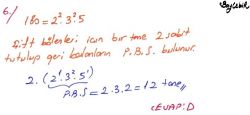 Başlıbel
6-)
180 = 2².3².5
Çift bölenleri için bir tane 2 sabit
tutulup geri kalanların P.B.S. bulunur.
2.(2¹.3².5¹)
P.B.S = 2.3.2 = 12 tane //
CEVAP: D